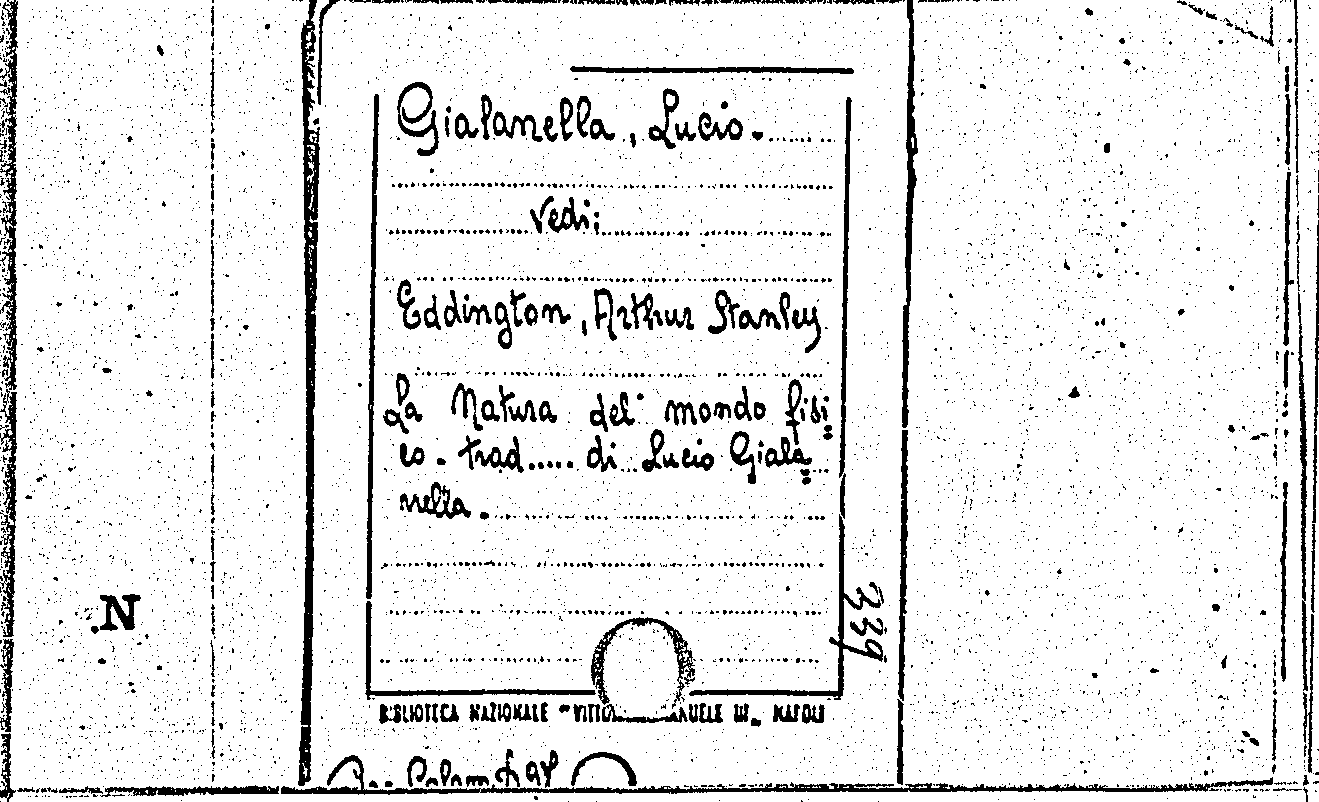 Gialanella, Lucio.
Vedi:
Eddington, Arthur Stanley
La Natura del mondo fisi
co. trad..... di Lucio Giala
nella.
339
N
BIBLIOTECA NAZIONALE "VITTO ANUELE III„ NAPOLI